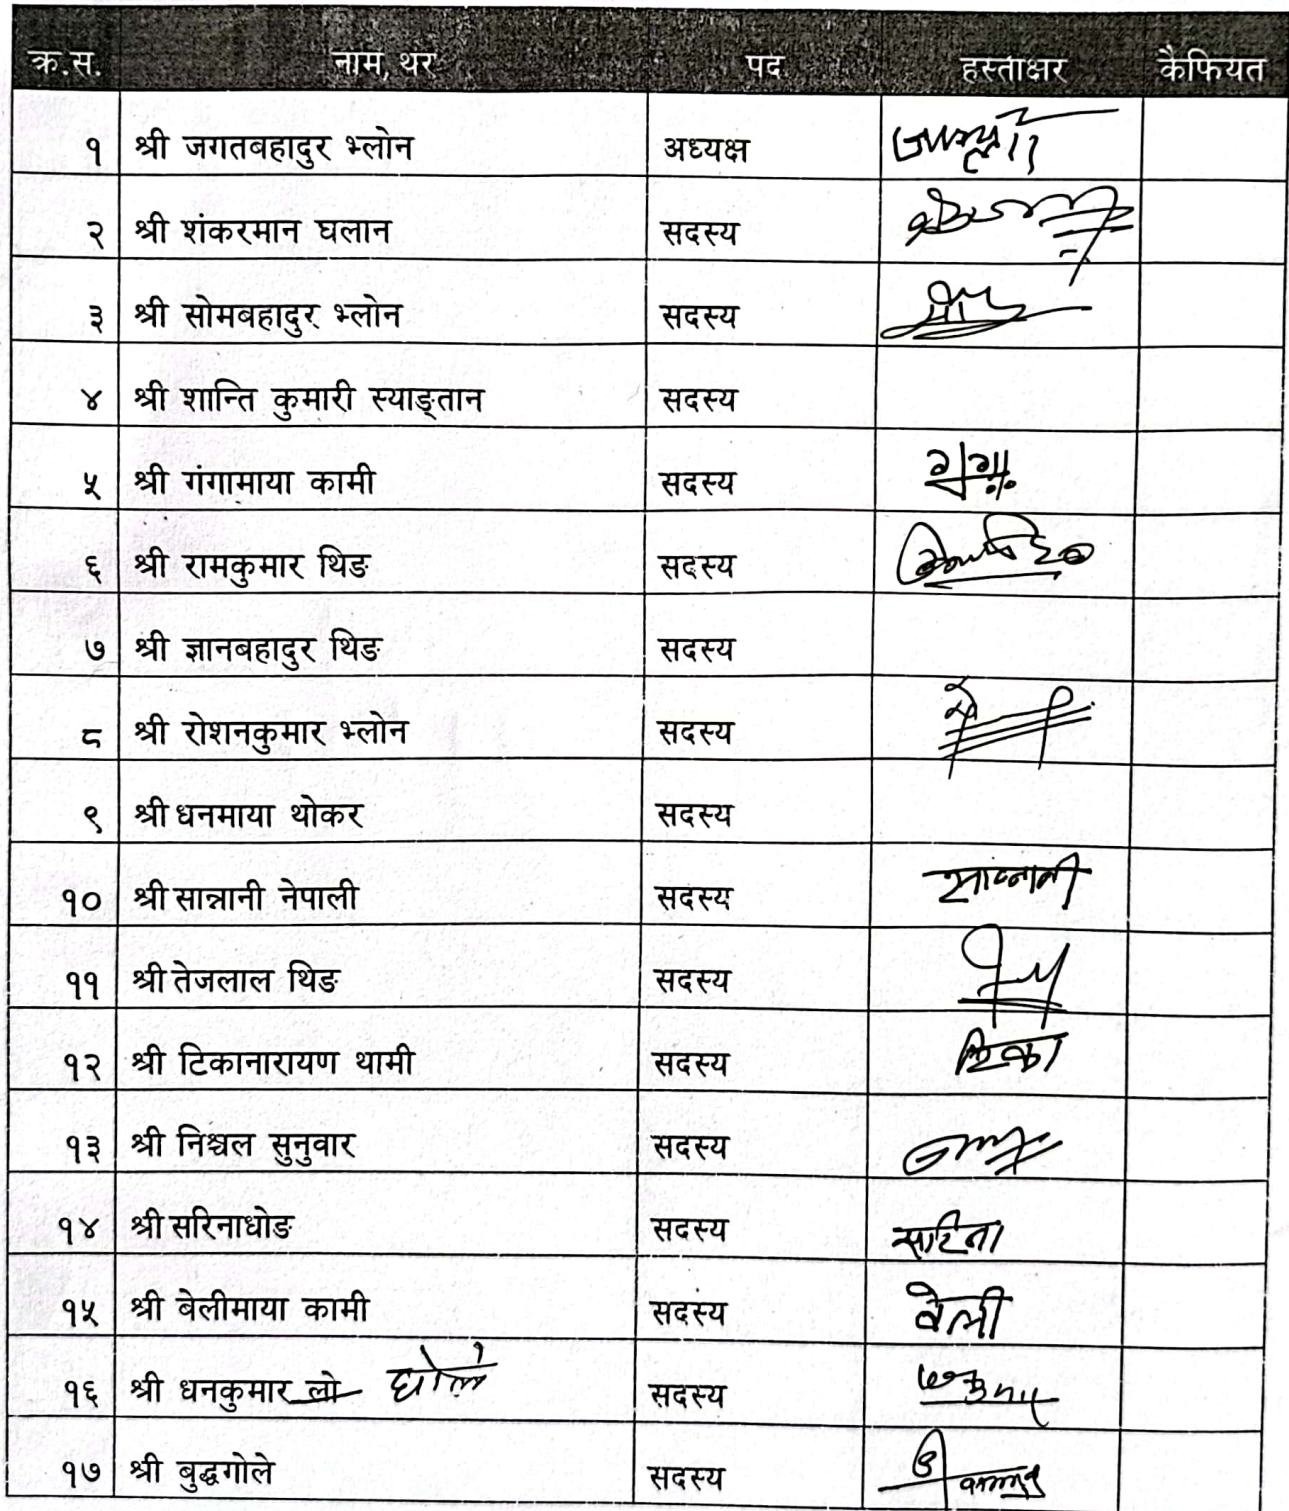 क्र.स. नाम, थर पद हस्ताक्षर कैफियत
१ श्री जगतबहादुर भ्लोन अध्यक्ष
२ श्री शंकरमान घलान सदस्य
३ श्री सोमबहादुर भ्लोन सदस्य
४ श्री शान्ति कुमारी स्याङ्तान सदस्य
५ श्री गंगामाया कामी सदस्य
६ श्री रामकुमार थिङ सदस्य
७ श्री ज्ञानबहादुर थिङ सदस्य
८ श्री रोशनकुमार भ्लोन सदस्य
९ श्री धनमाया थोकर सदस्य
१० श्री सान्नानी नेपाली सदस्य सान्नानी
११ श्री तेजलाल थिङ सदस्य
१२ श्री टिकानारायण थामी सदस्य टिका
१३ श्री निश्चल सुनुवार सदस्य
१४ श्री सरिनाधोङ सदस्य सरिना
१५ श्री बेलीमाया कामी सदस्य वेली
१६ श्री धनकुमार लो घोले सदस्य
१७ श्री बुद्धगोले सदस्य